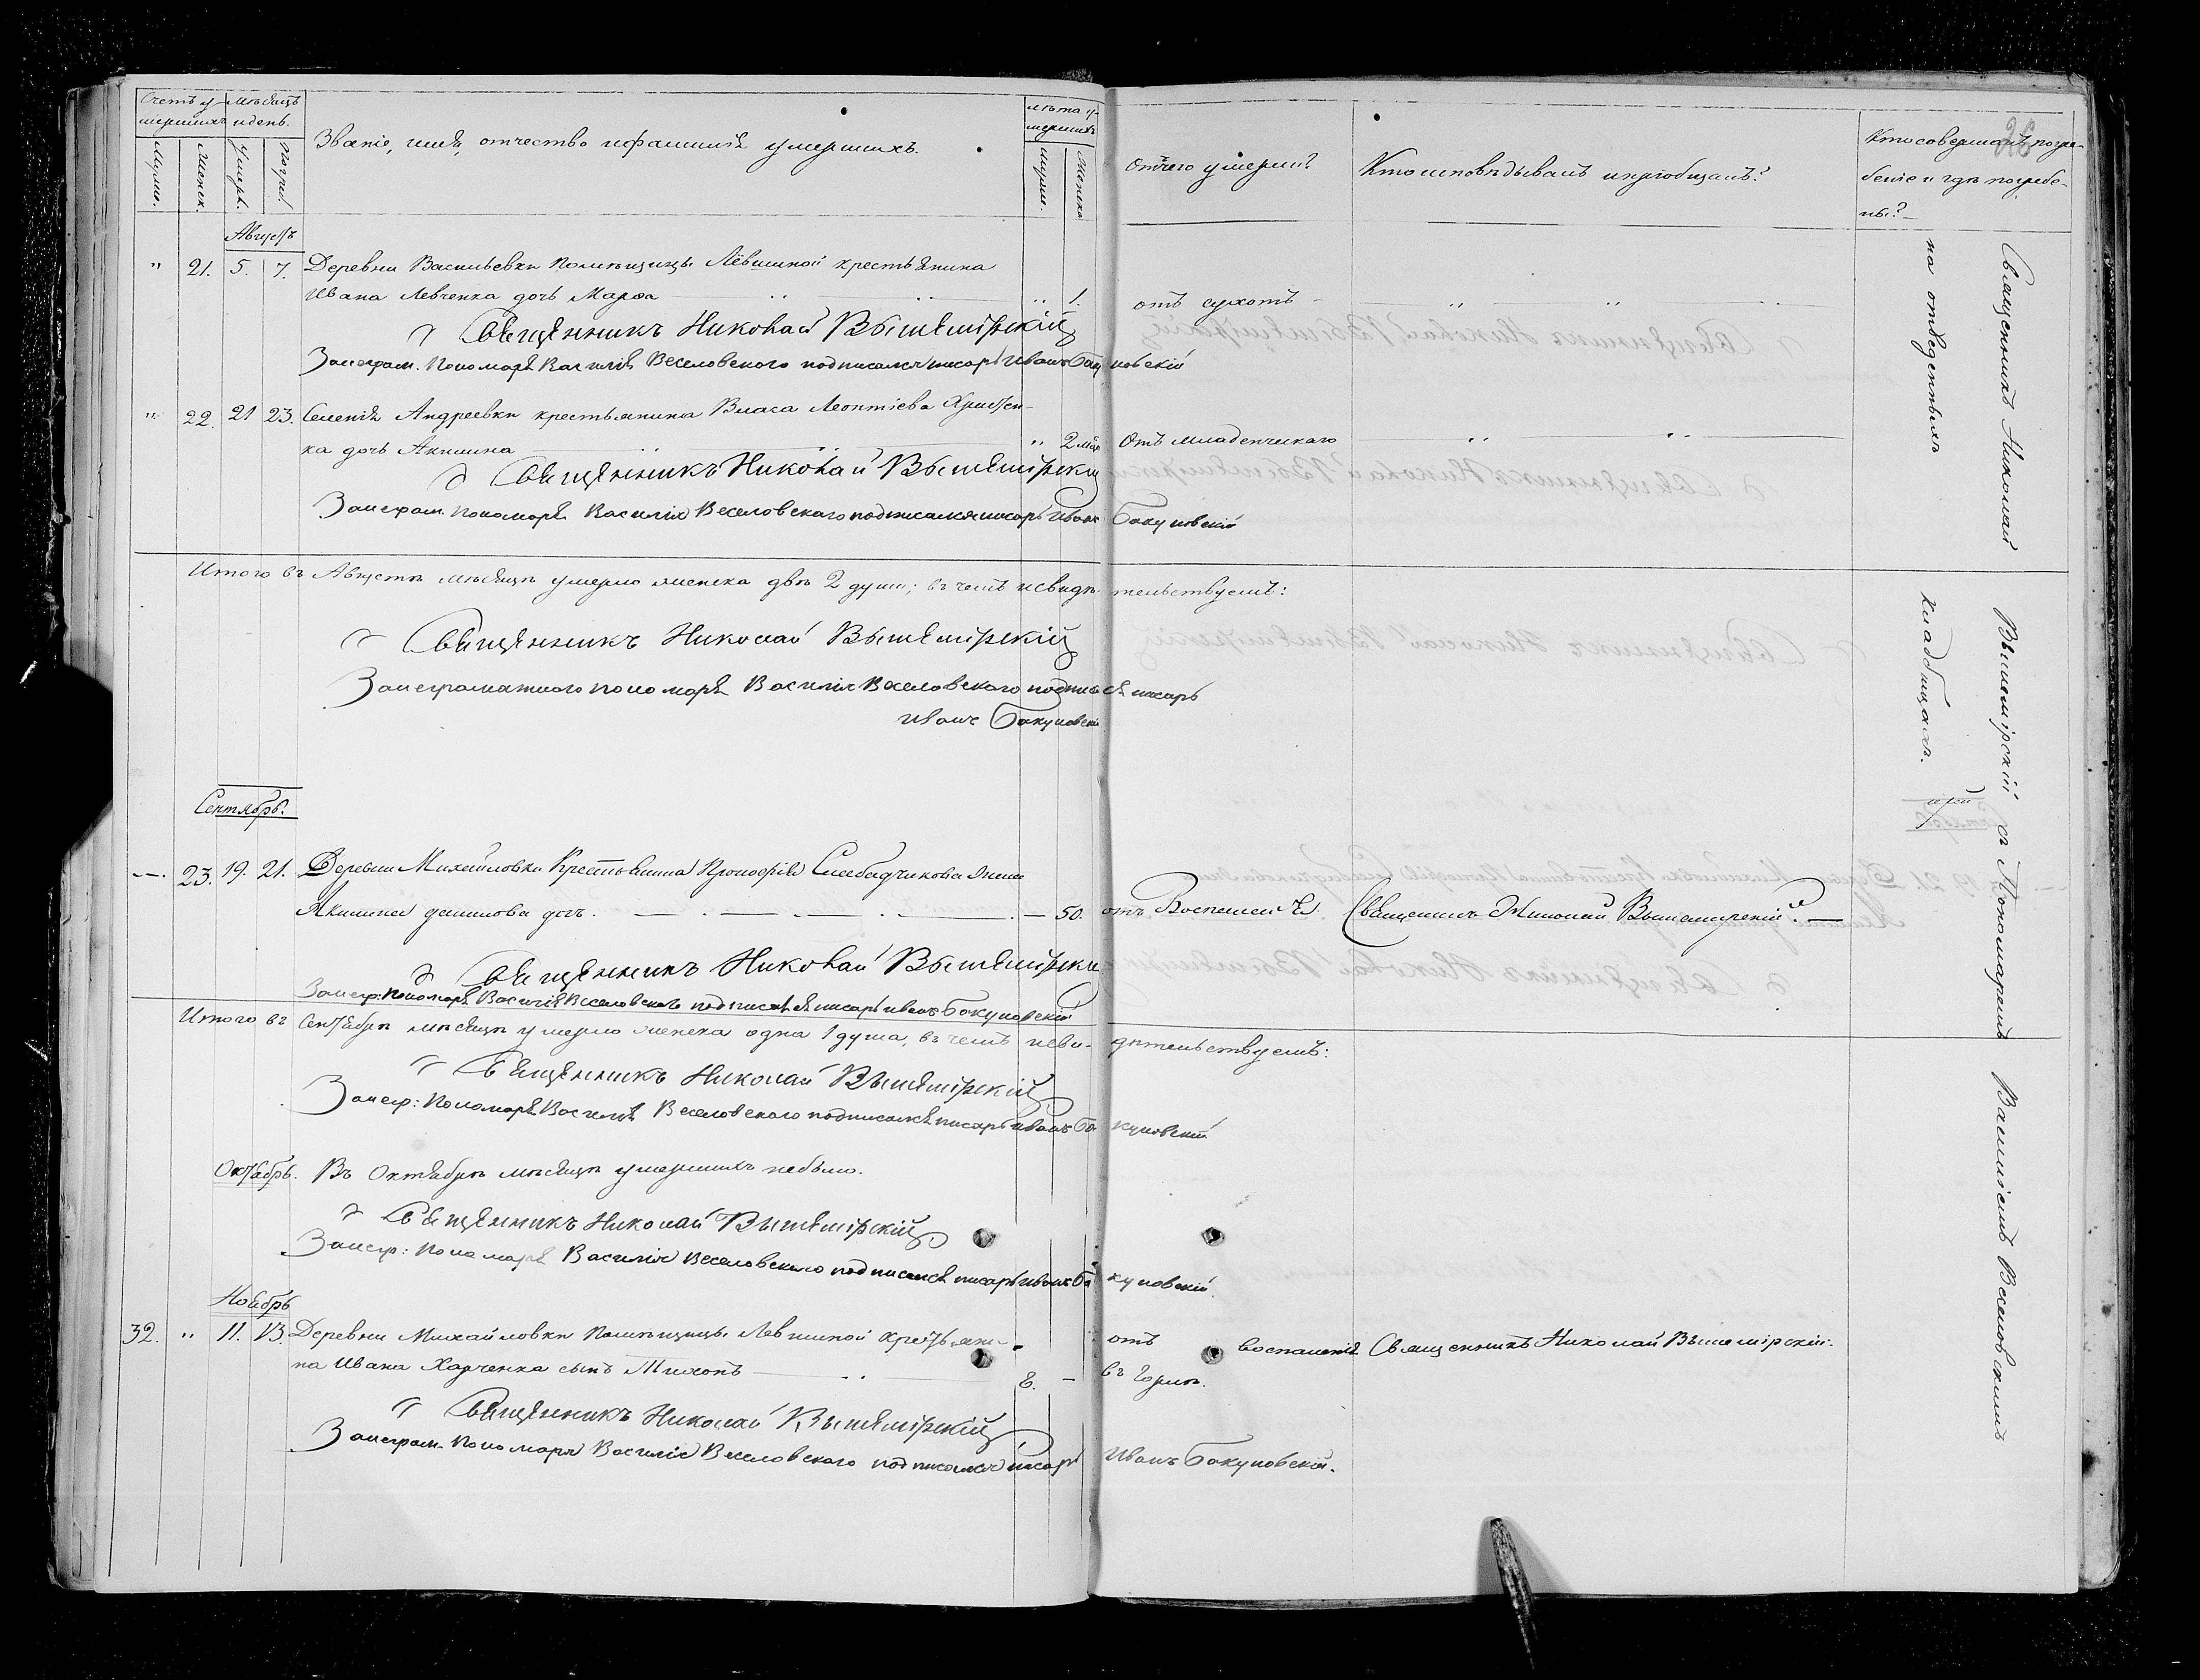 Счетъ у-
мершихъ
Мѣсяцъ
и день.
Званіе, имя, отчество и фамилія умершихъ.
Лѣта у-
мершихъ
Отчего умерли?
Кто исповѣдывалъ и пріобщалъ?
26
Кто совершалъ погре-
беніе и гдѣ погребе-
ны?
Мужш.
Женск.
Умерш.
Погреб.
мужш.
Женска
Августъ
" 21. 5. 7. Деревни Васильевки Помѣщицы Лёвшиной крестьянина
Ивана Левченка дочь Марѳа " 1. отъ сухотъ " "
Священникъ Николай Вышемірскій
Занеграм. Пономаря Василія Веселовского подписался писарь Иванъ Бакуновскій
" 22. 21 23. Селенія Андреевки крестьянина Власа Леонтіева Христен-
ка дочь Акилина " 2 мѣс. Отъ младенческаго " "
Священникъ Николай Вышемірскій
Занеграм. Пономаря Василія Веселовскаго подписался писарь Иванъ Бакуновскій
Итого въ Августѣ мѣсяцѣ умерло женска двѣ 2 души; въ чемъ и свидѣтельствуемъ:
Священникъ Николай Вышемірскій
За неграматного пономаря Василія Веселовского подписался писарь
Иванъ Бакуновскій
Сентябрь.
23. 19. 21. Деревни Михайловки Крестьянина Прокофія Слебодчикова жена
Акилина данилова дочь. 50. отъ Воспаленія Священникъ Николай Вышемирскій.
Священникъ Николай Вышемірскій
Занегр: пономаря Василія Веселовского подписался писарь Иванъ Бакуновскій
Итого въ Сентябрѣ мѣсяцѣ умерло женска одна 1 душа, въ чемъ и свидѣтельствуемъ:
Священникъ Николай Вышемірскій
Занегр: Пономаря Василія Веселовского подписался писарь Иванъ Бакуновскій
Октябрь. Въ Октябрѣ мѣсяцѣ умершихъ небыло.
Священникъ Николай Вышемірскій
Занегр: Пономаря Василія Веселовского подписался писарь Иванъ Бакуновскій.
Ноябрь
32. " 11. 13. Деревни Михайловки Помѣщицы Левшиной крестьяни-
на Ивана Харченка сынъ Тихонъ 8. - отъ воспаленія
въ горлѣ. Священникъ Николай Вышемірскій.
Священникъ Николай Вышемірскій
Занеграм. Пономаря Василія Веселовского подписался писарь Иванъ Бакуновскій.
Священникъ Николай Вышемірскій съ Пономаремъ Василіемъ Веселовскимъ
на отведенныхъ кладбищахъ.